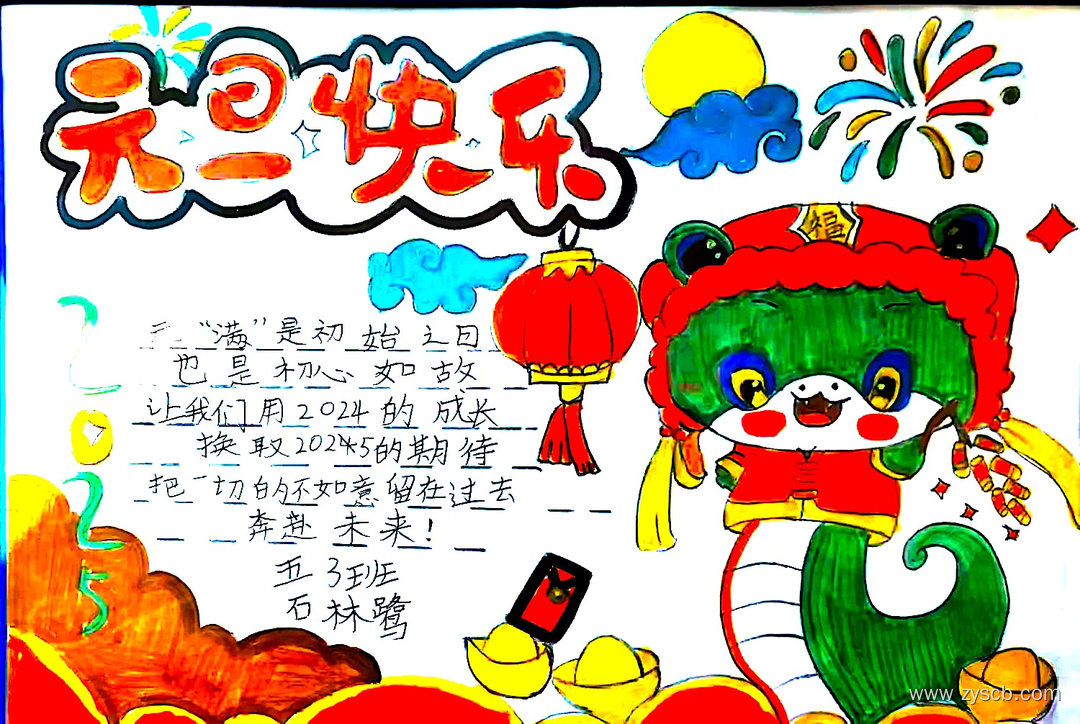 元旦快乐
福
2025
"满"是初始之日
也是初心如故
让我们用2024的成长
换取20245的期待
把一切的不如意留在过去
奔赴未来！
五3班
石林鹭
www.zyscb.com